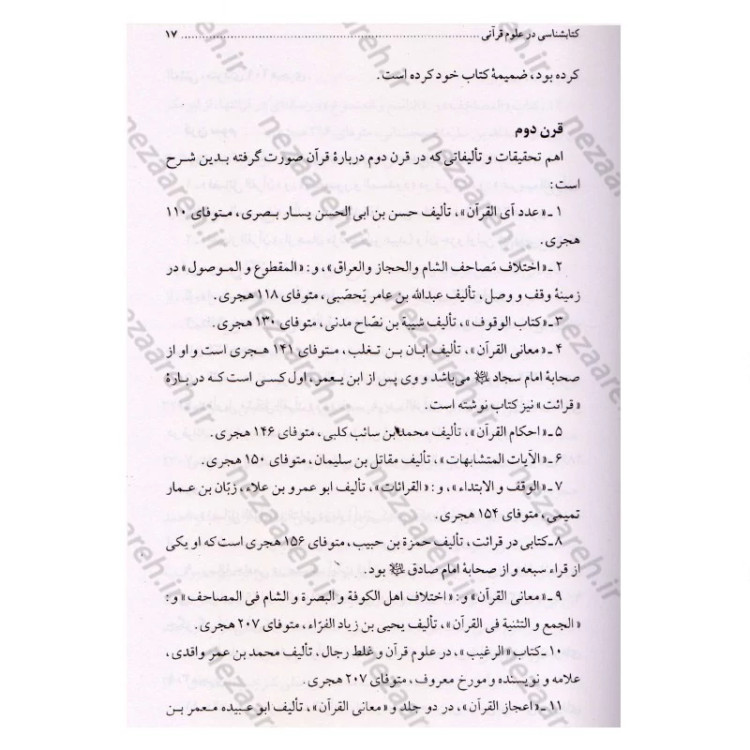 کتابشناسی در علوم قرآنی ........................................................ ۱۷
کرده بود، ضمیمهٔ کتاب خود کرده است.
قرن دوم
اهم تحقیقات و تألیفاتی که در قرن دوم دربارهٔ قرآن صورت گرفته بدین شرح
است:
۱ ـ «عدد آی القرآن»، تألیف حسن بن ابی الحسن یسار بصری، متوفای ۱۱۰
هجری.
۲ ـ «اختلاف مَصاحف الشام والحجاز والعراق»، و: «المقطوع و الموصول» در
زمینهٔ وقف و وصل، تألیف عبدالله بن عامر یَحصَبی، متوفای ۱۱۸ هجری.
۳ ـ «کتاب الوقوف»، تألیف شیبة بن نصّاح مدنی، متوفای ۱۳۰ هجری.
۴ ـ «معانی القرآن»، تألیف ابان بن تغلب، متوفای ۱۴۱ هجری است و او از
صحابهٔ امام سجاد ﷷ می‌باشد و وی پس از ابن یعمر، اول کسی است که در بارهٔ
«قرائت» نیز کتاب نوشته است.
۵ ـ «احکام القرآن»، تألیف محمد بن سائب کلبی، متوفای ۱۴۶ هجری.
۶ ـ «الآیات المتشابهات»، تألیف مقاتل بن سلیمان، متوفای ۱۵۰ هجری.
۷ ـ «الوقف و الابتداء»، و: «القرائات»، تألیف ابو عمرو بن علاء، زبّان بن عمار
تمیمی، متوفای ۱۵۴ هجری.
۸ ـ کتابی در قرائت، تألیف حمزة بن حبیب، متوفای ۱۵۶ هجری است که او یکی
از قراء سبعه و از صحابهٔ امام صادق ﷷ بود.
۹ ـ «معانی القرآن» و: «اختلاف اهل الکوفة و البصرة و الشام فی المصاحف» و:
«الجمع و التثنیة فی القرآن»، تألیف یحیی بن زیاد الفرّاء، متوفای ۲۰۷ هجری.
۱۰ ـ کتاب «الرغیب»، در علوم قرآن و غلط رجال، تألیف محمد بن عمر واقدی،
علامه و نویسنده و مورخ معروف، متوفای ۲۰۷ هجری.
۱۱ ـ «اعجاز القرآن»، در دو جلد و «معانی القرآن»، تألیف ابو عبیده معمر بن
nezaareh.ir